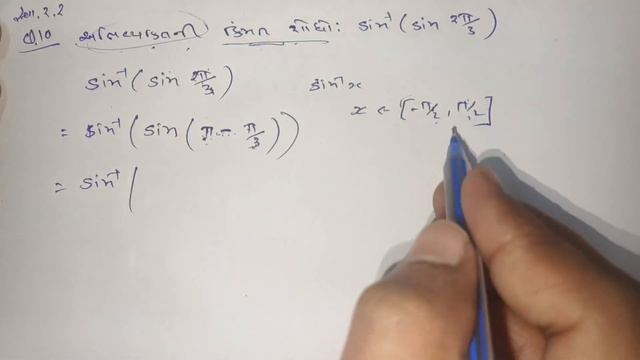 સ્વા. 2.2
Q.10 અભિવ્યક્તિની કિંમત શોધો: sin⁻¹(sin 2π/3)
sin⁻¹(sin 2π/3)
sin⁻¹x
x ∈ [-π/2, π/2]
= sin⁻¹(sin(π - π/3))
= sin⁻¹(